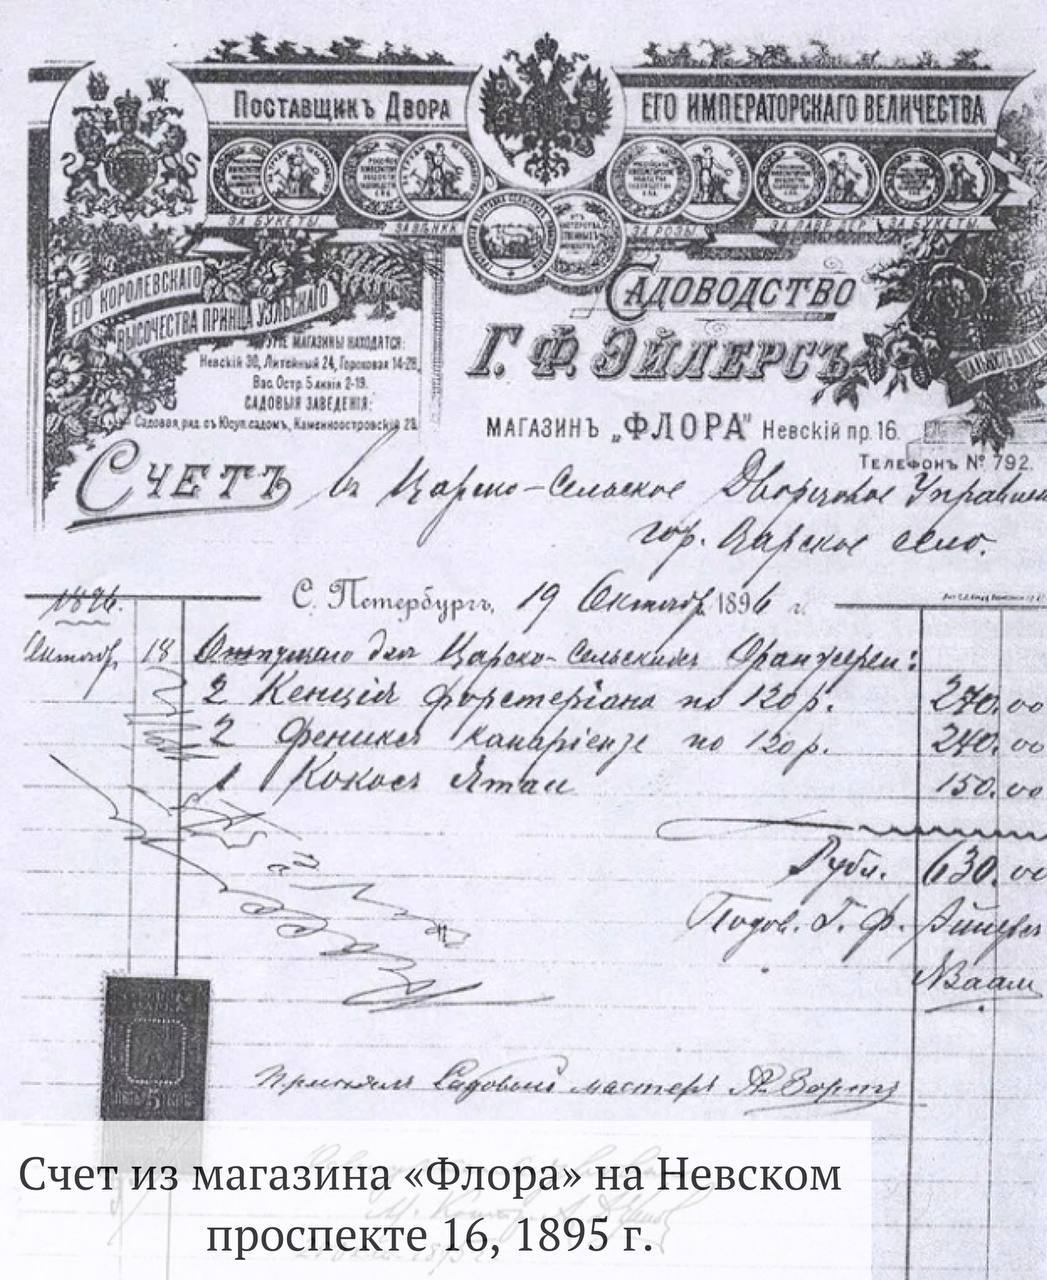 Поставщикъ Двора
ЕГО ИМПЕРАТОРСКАГО ВЕЛИЧЕСТВА
ЗА БУКЕТЫ
ЗА ВѢНКИ
ЗА РОЗЫ
ЗА ЛАВР. ДЕР.
ЗА БУКЕТЫ
ЕГО КОРОЛЕВСКАГО
ВЫСОЧЕСТВА ПРИНЦА УЭЛЬСКАГО
МАГАЗИНЫ НАХОДЯТСЯ:
Невскій 30, Литейный 24, Гороховая 14-28,
Вас. Остр. 5 линія 2-19.
САДОВЫЯ ЗАВЕДЕНІЯ:
Садовая, ряд. съ Юсуп. садомъ, Каменноостровскій 28.
Садоводство
Г. Ф. Эйлерсъ
МАГАЗИНЪ „ФЛОРА" Невскій пр. 16.
Телефонъ № 792.
Счетъ въ Царско-Сельское Дворцовое
гор. Царское село.
С. Петербургъ, 19 Октября 1896 г.
1896.
Октябр. 18 Отпущено для Царско-Сельскихъ Оранжерей:
2 Кенція форстеріана по 120 р. 240.00
2 Фениксъ канаріензе по 120 р. 240.00
1 Кокосъ Ятаи 150.00
Рубл. 630.00
Г. Ф. Эйлерсъ
Принялъ Садовый мастеръ
Счет из магазина «Флора» на Невском
проспекте 16, 1895 г.